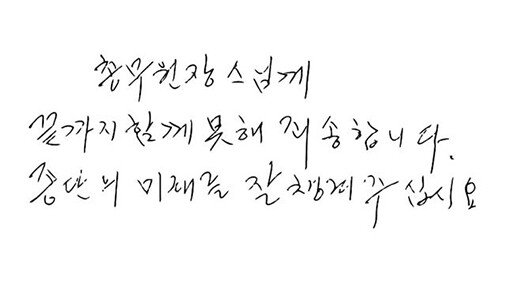 총무원장스님께
끝까지함께 못해 죄송합니다.
종단의 미래를 잘 챙겨 주십시요